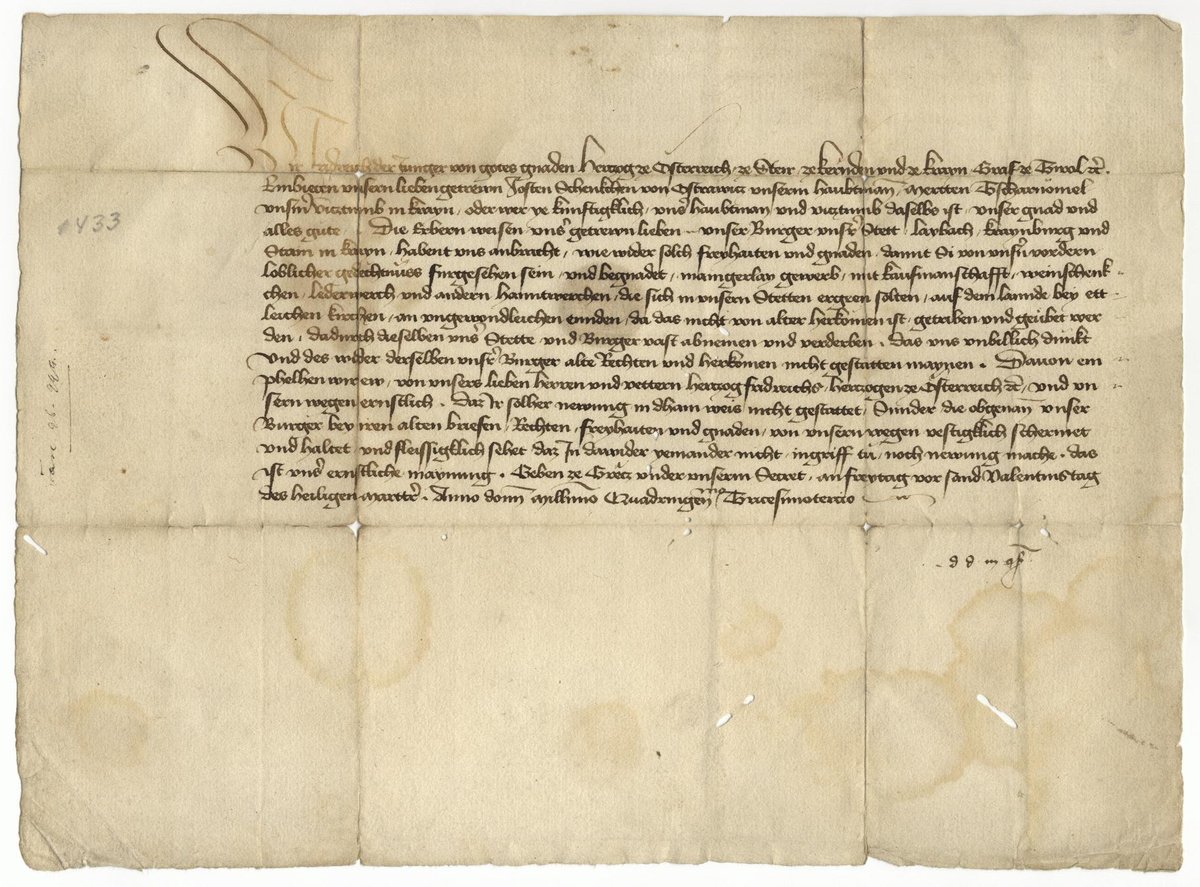 Wir Fridreich der Junger von gotes gnaden Herczog ze Österreich, ze Steir, ze kernden und ze krayn Graf ze Tirol etc.
Embieten unsern lieben getrewn Josten Schenkchen von Ostrawicz unserm haubtman, Mertten Tschernomel
unserm Vicztumb in krayn, oder wer ye kunftigklich, unser haubtman und vicztumb daselbs ist, unser gnad und
alles gute . Die Erbern weisen unser getrewn lieben .. unser Burger unser Stett . Laybach, kraynburg und
Stain in krayn, habent uns anbracht, wie wider solh freyhaiten und gnaden, damit Si von unsern vordern
loblicher gedechtnuss fürgesehen sein, und begnadet, manigerlay gewerb, mit kaufmanschafft, weinschenk
chen, lederwerch und andern hanntwerchen, die sich in unsern Stetten ergeen solten, auf dem lannde bey ett
leichen kirchen, an ungewondleichen ennden, da das nicht von alter herkömen ist, getriben und geübet wer
den, dadurch dieselben unser Stette und Burger vast abnemen und verderben . das uns unbillich dunkt
und des wider derselben unser Burger alte Rechten und herkomen nicht gestatten maynen . Davon em
phelhen wir ew, von unsers lieben herren und vettern herczog fridreichs, herczogen ze Österreich etc, und un
sern wegen ernstlich . daz Ir solher newung in dhain weis nicht gestattet, Sunder die obgenan unser
Burger bey iren alten briefen, Rechten, freyhaiten und gnaden, von unsern wegen vestigklich schermet
und haltet und fleissigklich sehet daz In dawider yemander nicht, ingriff tü, noch newung mache . das
ist unser ernstliche maynung . Geben ze Grecz under unserm Secret, an freytag vor sand Valentins tag
des heiligen martrer . Anno domini Millesimo Quadringentesimo Tricesimotercio
d d in
1433